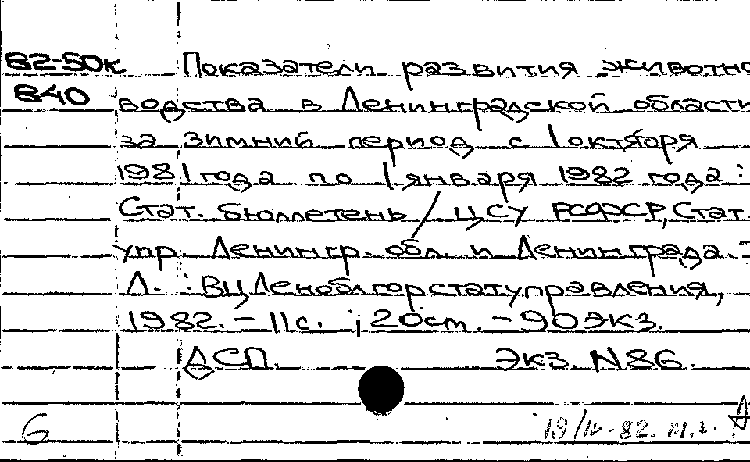 82-50к Показатели развития животно
840 водства в Ленинградской области
за зимний период с 1 октября
1981 года по 1 января 1982 года:
Стат. бюллетень / ЦСУ РСФСР, Стат.
упр. Ленингр. обл. и Ленинграда. -
Л.: ВЦ Леноблгорстатуправления,
1982. - 11с. ; 20см. - 90экз.
ДСП. Экз. N86.
6 19/IV-82.